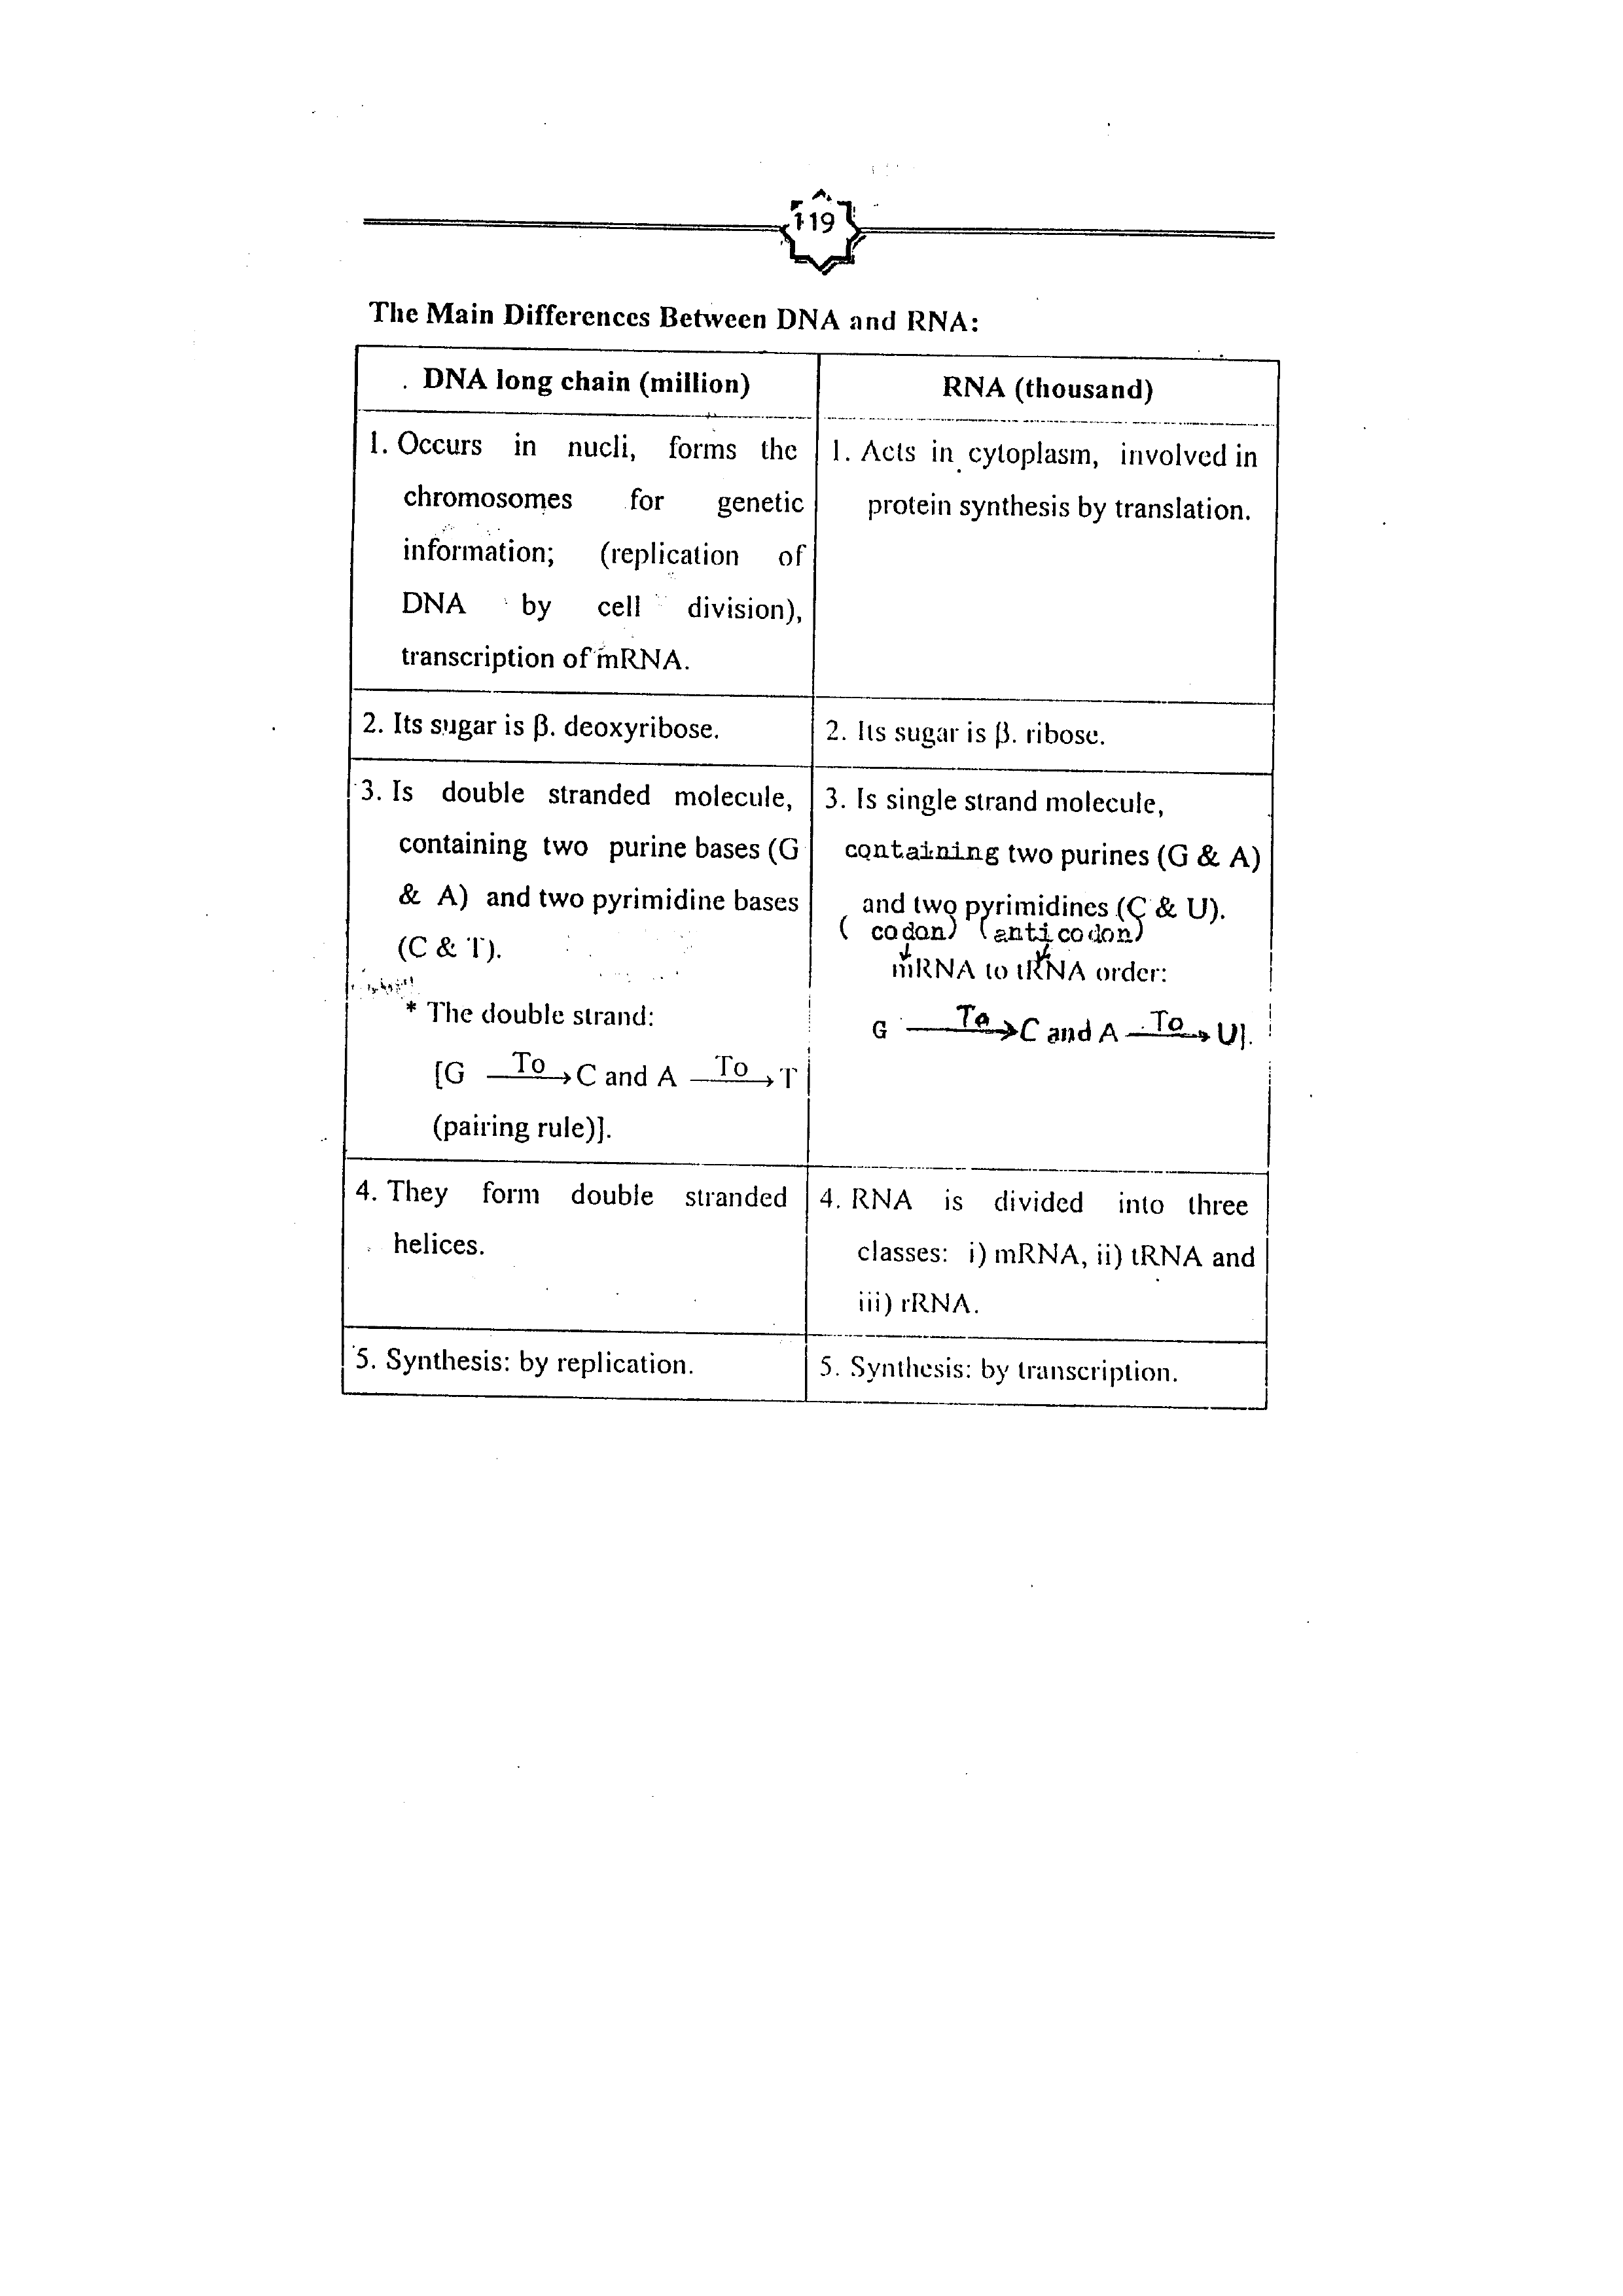 119
The Main Differences Between DNA and RNA:
DNA long chain (million)
RNA (thousand)
1. Occurs in nucli, forms the
chromosomes for genetic
information; (replication of
DNA by cell division),
transcription of mRNA.
1. Acts in cytoplasm, involved in
protein synthesis by translation.
2. Its sugar is β. deoxyribose.
2. Its sugar is β. ribose.
3. Is double stranded molecule,
containing two purine bases (G
& A) and two pyrimidine bases
(C & T).
* The double strand:
[G To→ C and A To→ T
(pairing rule)].
3. Is single strand molecule,
containing two purines (G & A)
and two pyrimidines (C & U).
(codon) (anticodon)
mRNA to tRNA order:
G To→ C and A To→ U].
4. They form double stranded
helices.
4. RNA is divided into three
classes: i) mRNA, ii) tRNA and
iii) rRNA.
5. Synthesis: by replication.
5. Synthesis: by transcription.